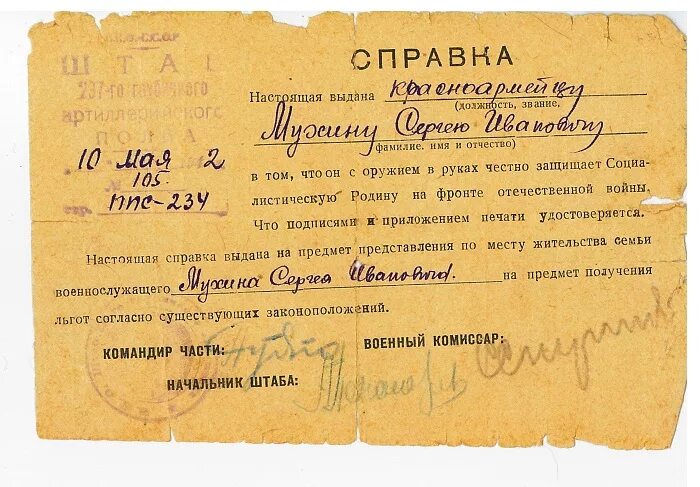 Н.К.О.-С.С.С.Р
ШТАБ
237-го гаубичного
артиллерийского
ПОЛКА
10 мая 2
№ 105
ППС-234
СПРАВКА
Настоящая выдана красноармейцу
(должность, звание,
Мухину Сергею Ивановичу
фамилие. имя и отчество)
в том, что он с оружием в руках честно защищает Социа-
листическую Родину на фронте отечественной войны.
Что подписями и приложением печати удостоверяется.
Настоящая справка выдана на предмет представления по месту жительства семьи
военнослужащего Мухина Сергея Ивановича. на предмет получения
льгот согласно существующих законоположений.
КОМАНДИР ЧАСТИ:
ВОЕННЫЙ КОМИССАР:
НАЧАЛЬНИК ШТАБА: